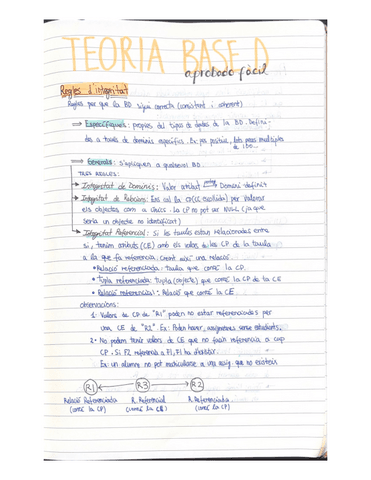 TEORIA BASE D
aprobado fácil
Regles d'integritat
Regles per que la BD sigui correcta (consistent i coherent)
⇒ Específiques: pròpies del tipus de dades de la BD. Defini-
des a través de dominis específics. Ex: pes positiu,
de 150...
⇒ Generals: s'apliquen a qualsevol BD
TRES REGLES:
→ Integritat de Dominis: Valor atribut → Domini definit
→ Integritat de Relacions: Ens cal la CP per valorar
els objectes com a únics. La CP no pot ser NULL (ja que
seria un objecte no identificat)
→ Integritat Referencial: Si les taules estan relacionades entre
si, tenim atributs (CE) amb els valors de les CP de la taula
a la que fa referència. Creant així una relació.
• Relació referenciada: taula que conté la CP.
• Tupla referenciada: tupla (objecte) que conté la CP de la CE
• Relació referencial: Relació que conté la CE
observacions:
1. Valors de CP de "R1" poden no estar referenciades per
una CE de "R2". Ex: Poden haver assignatures sense estudiants.
2. No podem tenir valors de CE que no facin referència a cap
CP. Si F2 referencia a F1, F1 ha d'existir.
Ex: un alumne no pot matricular-se a una assig. que no existeix
R1 ← R3 → R2
Relació Referenciada R. Referencial R. Referenciada
(conté la CP) (conté la CE) (conté la CP)